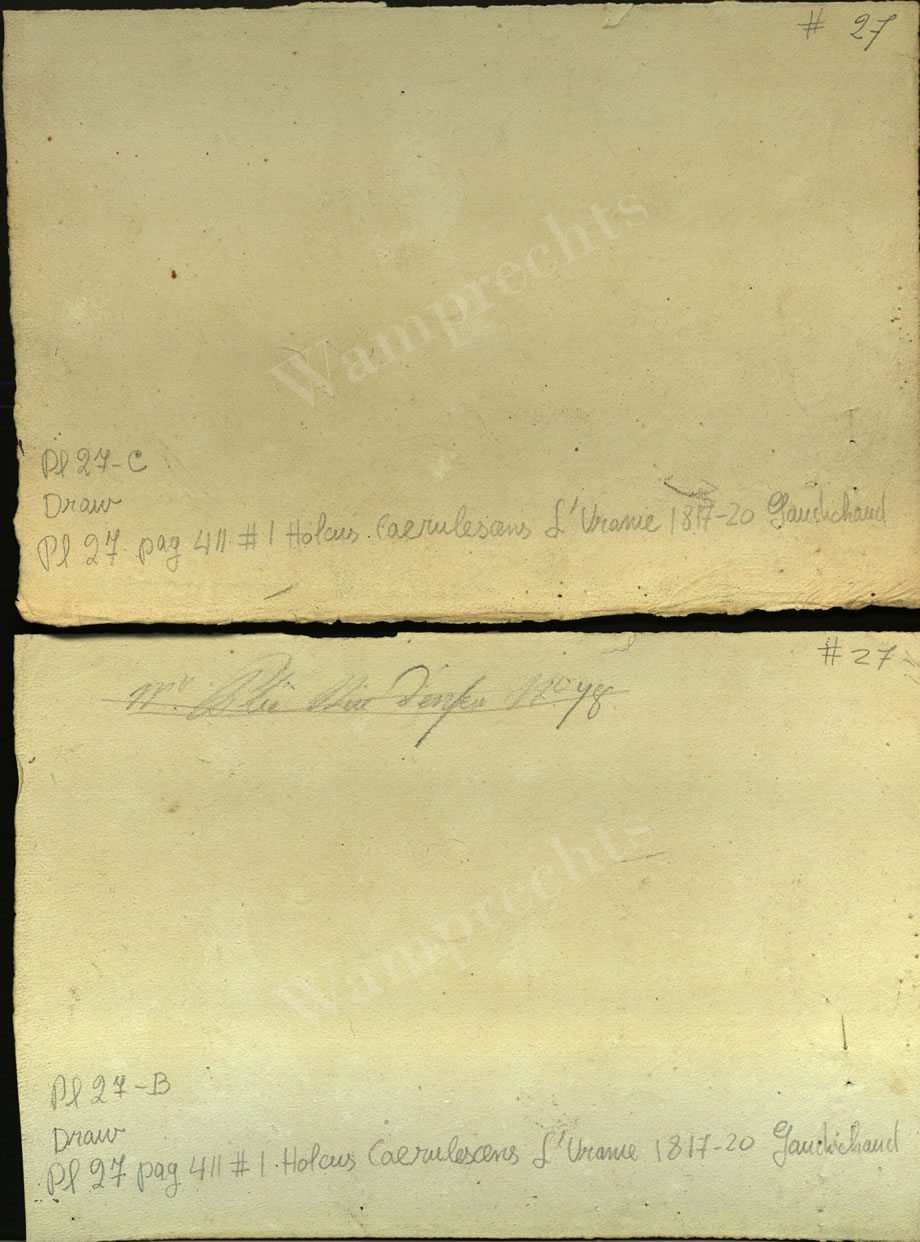 # 27
Wamprechts
Pl 27-C
Draw
Pl 27 pag 411 #1 Holcus Caerulescens L'Uranie 1817-20 Gaudichaud
# 27
Mr.
Wamprechts
Pl 27-B
Draw
Pl 27 pag 411 #1 Holcus Caerulescens L'Uranie 1817-20 Gaudichaud